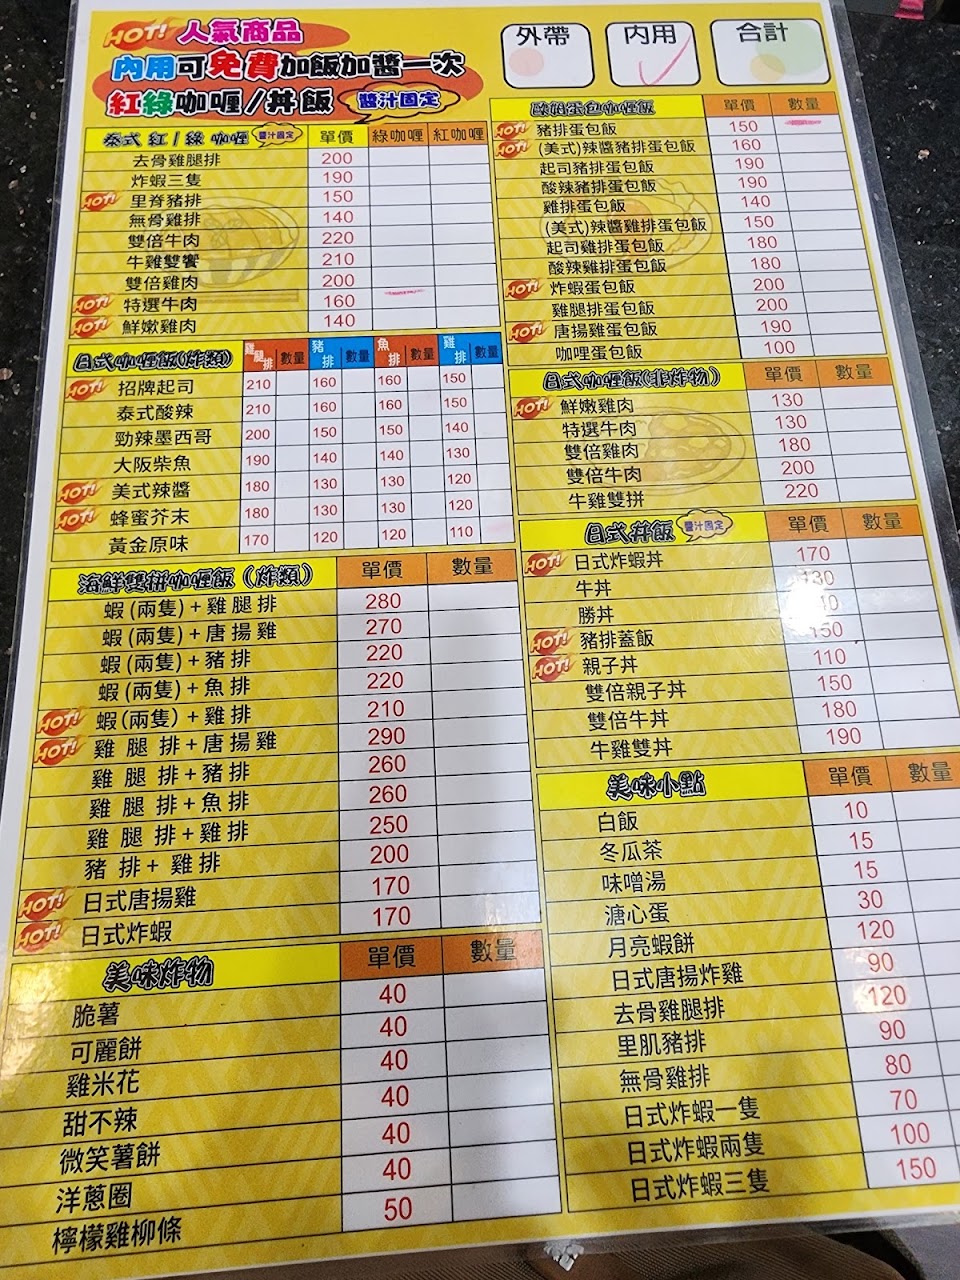 HOT! 人氣商品
內用可免費加飯加醬一次
紅綠咖喱/丼飯 醬汁固定
外帶 內用 合計
泰式 紅/綠 咖喱 醬汁固定 單價 綠咖喱 紅咖喱
去骨雞腿排 200
炸蝦三隻 190
HOT! 里脊豬排 150
無骨雞排 140
雙倍牛肉 220
牛雞雙饗 210
雙倍雞肉 200
HOT! 特選牛肉 160
HOT! 鮮嫩雞肉 140
日式咖喱飯(炸類) 雞腿排 數量 豬排 數量 魚排 數量 雞排 數量
HOT! 招牌起司 210 160 160 150
泰式酸辣 210 160 160 150
勁辣墨西哥 200 150 150 140
大阪柴魚 190 140 140 130
HOT! 美式辣醬 180 130 130 120
HOT! 蜂蜜芥末 180 130 130 120
黃金原味 170 120 120 110
海鮮雙拼咖喱飯(炸類) 單價 數量
蝦(兩隻)+雞腿排 280
蝦(兩隻)+唐揚雞 270
蝦(兩隻)+豬排 220
蝦(兩隻)+魚排 220
HOT! 蝦(兩隻)+雞排 210
HOT! 雞腿排+唐揚雞 290
雞腿排+豬排 260
雞腿排+魚排 260
雞腿排+雞排 250
豬排+雞排 200
HOT! 日式唐揚雞 170
HOT! 日式炸蝦 170
美味炸物 單價 數量
脆薯 40
可麗餅 40
雞米花 40
甜不辣 40
微笑薯餅 40
洋蔥圈 40
檸檬雞柳條 50
歐姆蛋包咖喱飯 單價 數量
HOT! 豬排蛋包飯 150
HOT! (美式)辣醬豬排蛋包飯 160
起司豬排蛋包飯 190
酸辣豬排蛋包飯 190
雞排蛋包飯 140
(美式)辣醬雞排蛋包飯 150
起司雞排蛋包飯 180
酸辣雞排蛋包飯 180
HOT! 炸蝦蛋包飯 200
雞腿排蛋包飯 200
HOT! 唐揚雞蛋包飯 190
咖哩蛋包飯 100
日式咖喱飯(非炸物) 單價 數量
HOT! 鮮嫩雞肉 130
特選牛肉 130
雙倍雞肉 180
雙倍牛肉 200
牛雞雙拼 220
日式丼飯 醬汁固定 單價 數量
HOT! 日式炸蝦丼 170
牛丼 130
勝丼
HOT! 豬排蓋飯 150
HOT! 親子丼 110
雙倍親子丼 150
雙倍牛丼 180
牛雞雙丼 190
美味小點 單價 數量
白飯 10
冬瓜茶 15
味噌湯 15
溏心蛋 30
月亮蝦餅 120
日式唐揚炸雞 90
去骨雞腿排 120
里肌豬排 90
無骨雞排 80
日式炸蝦一隻 70
日式炸蝦兩隻 100
日式炸蝦三隻 150